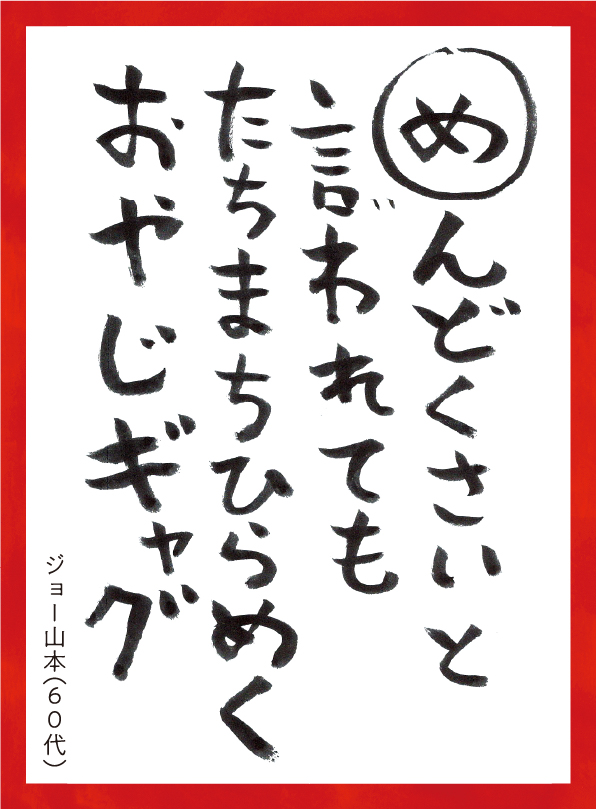 めんどくさいと
言゛われても
たちまちひらめく
おやじギャグ
ジョー山本(60代)